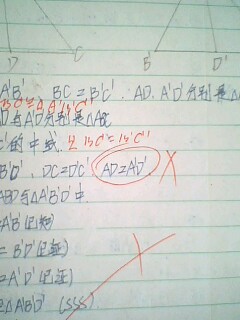 D C B' D'
A'B'. BC=B'C'. AD、A'D'分别是△A
D与A'D'分别是△ABC
C'的中线. 又BC=B'C'
B'D'. DC=D'C'. AD=A'D'. ×
ABD与△A'B'D'中
=A'B'(已知)
=B'D'(已证)
=A'D'(已证)
≌△A'B'D' (SSS)